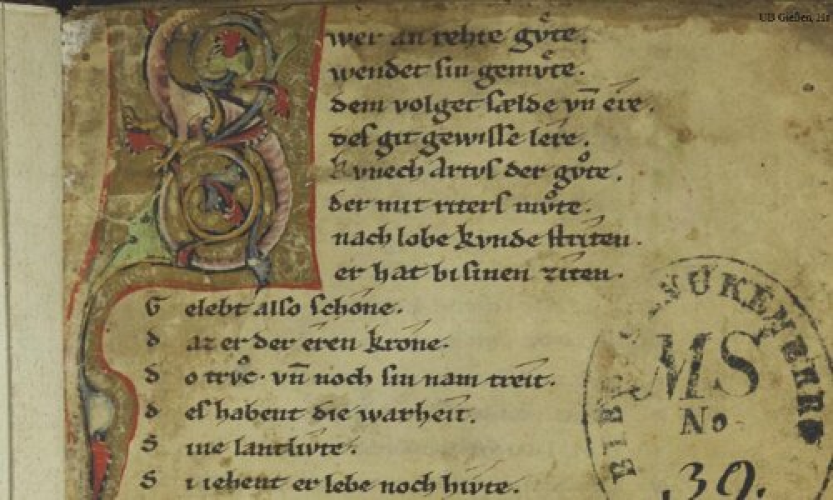 UB Gießen, Hs
Swer an rehte gvͤte.
wendet sin gemvͤte.
dem volget sælde vn̄ ere.
des git gewisse lere.
kvnech Artvs der gvͦte.
der mit riters mvͦte.
nach lobe kvnde striten.
er hat bi sinen ziten.
G elebt also schone.
d az er der eren krone.
d o trvͦc. vn̄ noch sin nam treit.
d es habent die warheit.
S ine lantlivte.
S i iehent er lebe noch hivte.
MS
No
39.